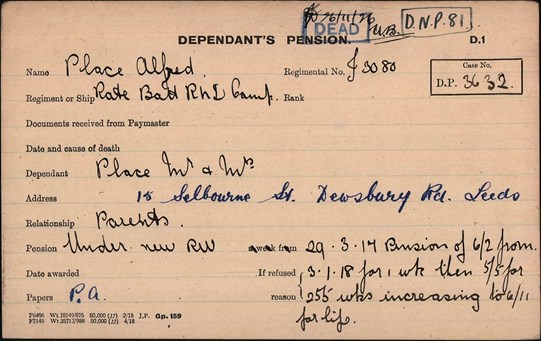 26/11/26
DEAD
D.N.P. 81
DEPENDANT'S PENSION.
D.1
Name Place Alfred.
Regimental No. J 3080
Case No.
D.P. 3632.
Regiment or Ship Batt Camp.
Rank
Documents received from Paymaster
Date and cause of death
Dependant Place Mr & Mrs
Address 15 Selbourne St. Dewsbury Rd. Leeds
Relationship Parents.
Pension Under new RW a week from 29.3.17 Pension of 6/2 from
Date awarded If refused reason 3.1.18 for 1 wk then 5/5 for
Papers P.A. 255 wks increasing to 6/11
for life.
F6496 Wt.18149/875 50,000 (17) 2/18 J.P. Gp. 159
50,000 (17) 4/18